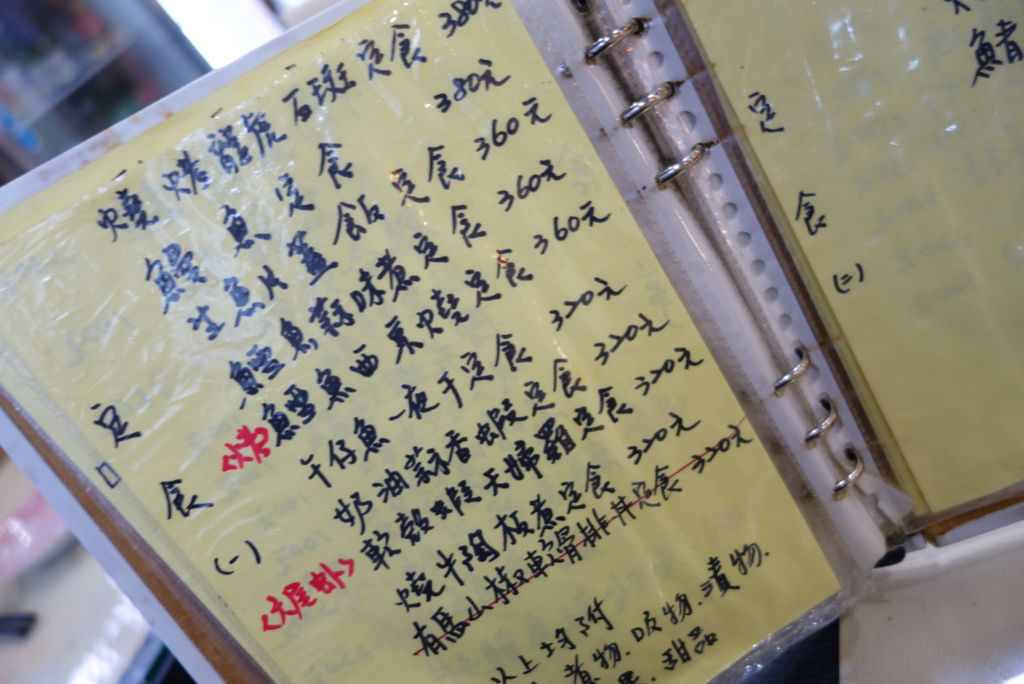 定食(一)
燒烤龍虎石斑定食 380元
鰻魚定食 380元
生魚片蓋飯定食 360元
鱈魚蒜味煮定食 360元
<烤>鱈魚西京燒定食 360元
午仔魚一夜干定食 320元
奶油蒜香蝦定食 320元
<大尾蝦>軟殼蝦天婦羅定食 320元
燒牛肉板煮定食 320元
有馬山椒軟骨排丼定食 320元
以上均附
煮物.吸物.漬物.
甜品
定食(二)